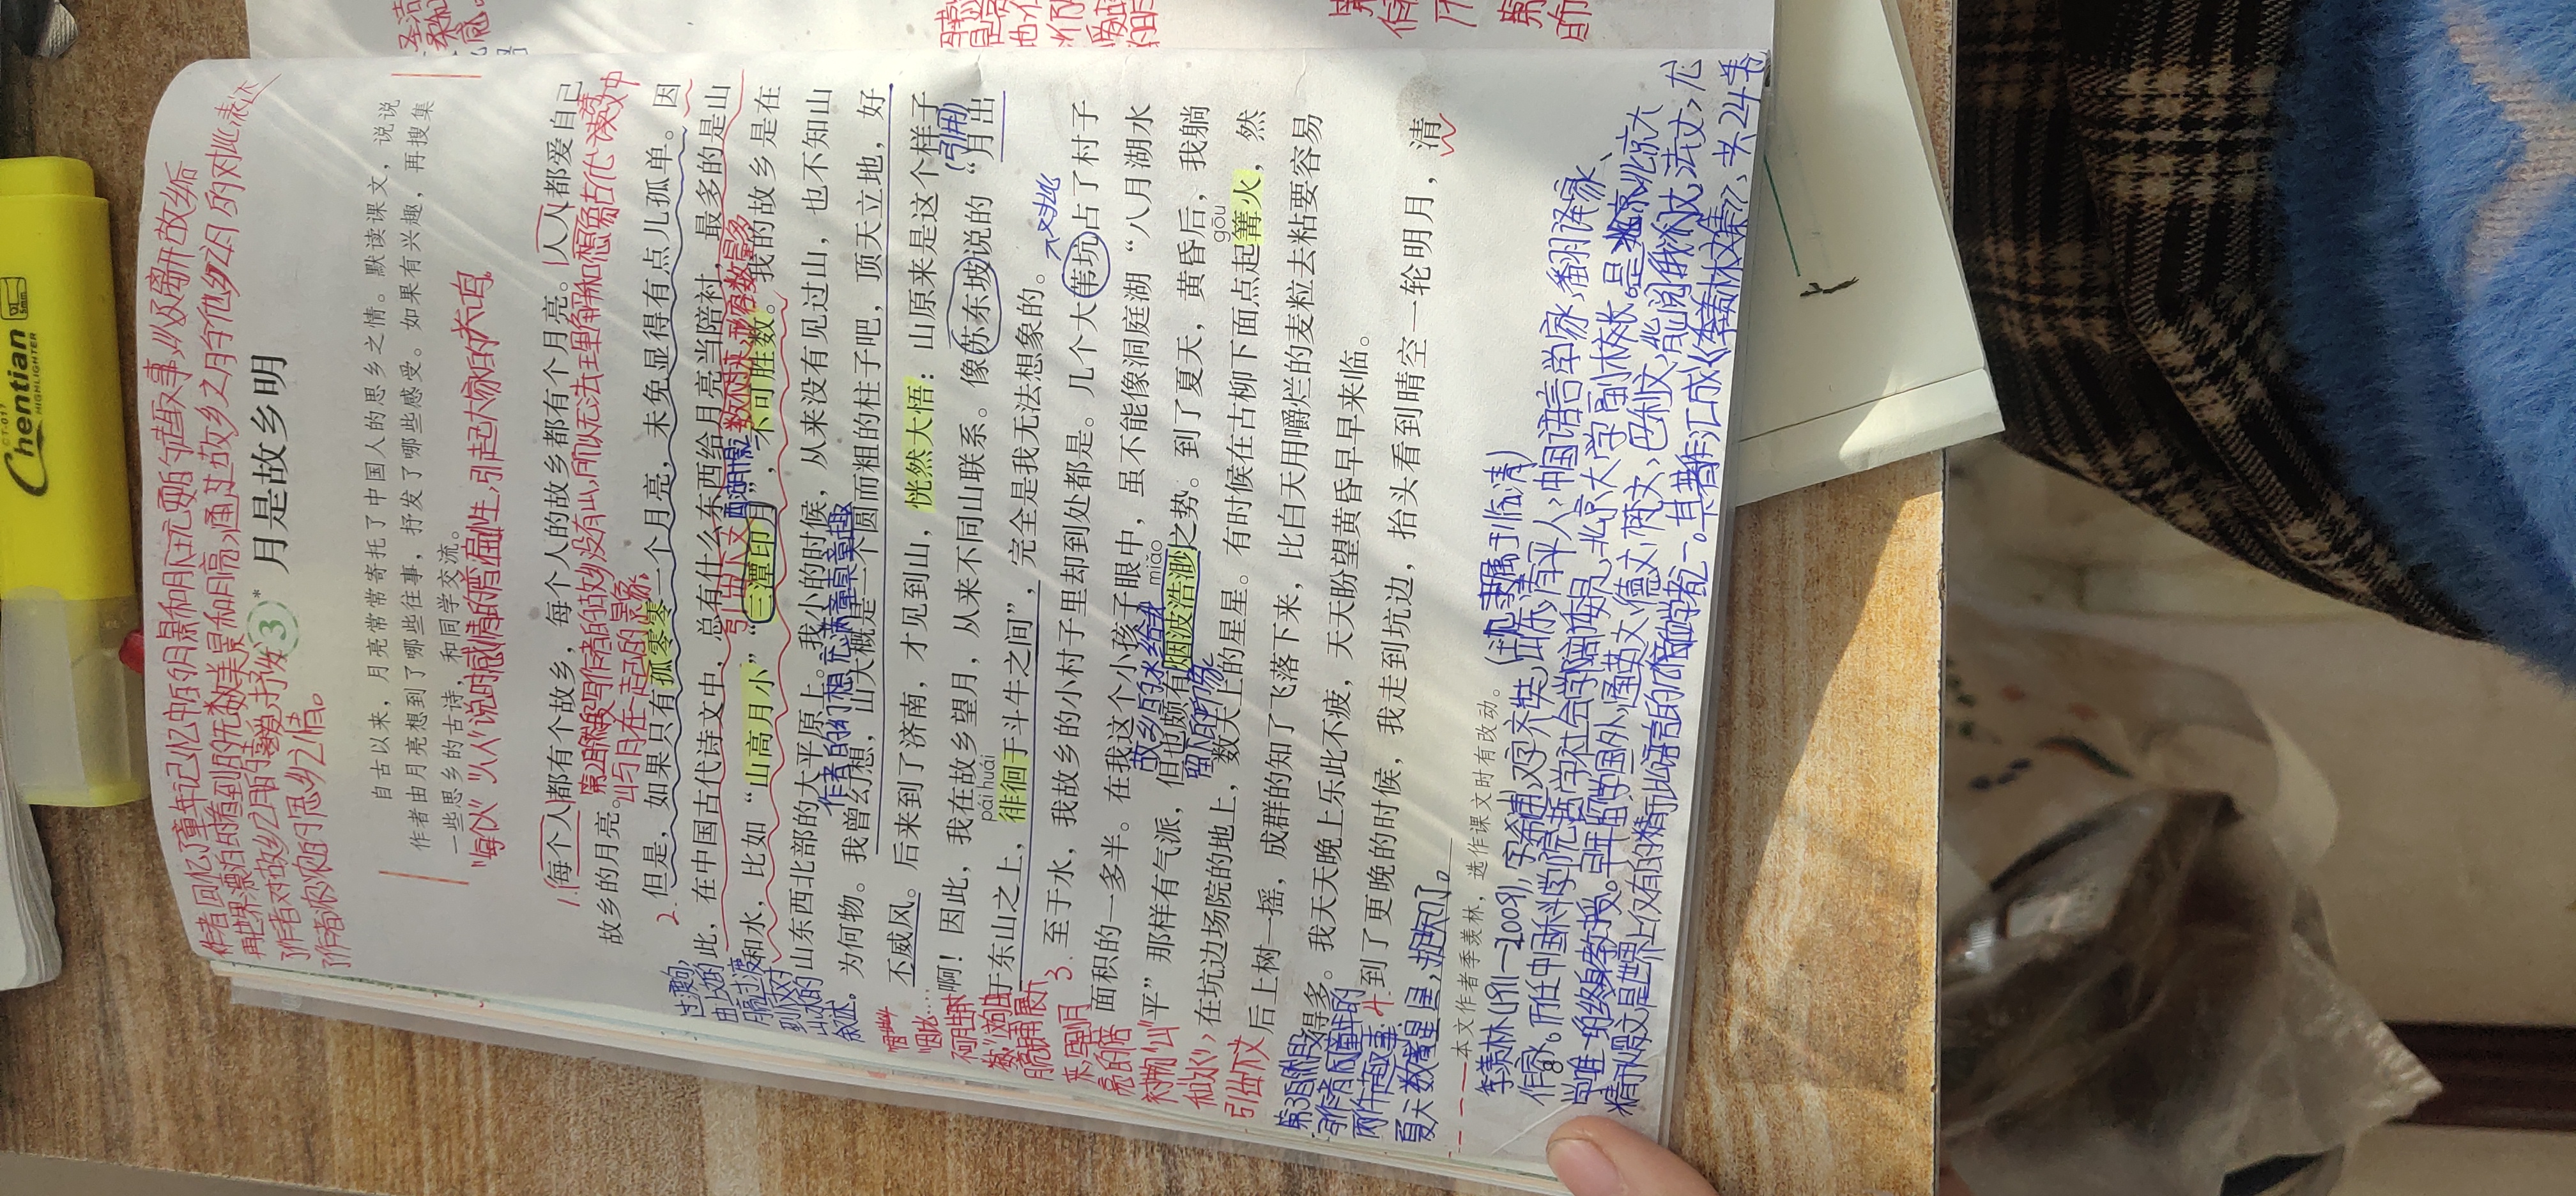 CT-017
Chentian
HIGHLIGHTER
5mm
作者回忆了童年记忆中的月景和月下玩耍的趣事,以及离开故乡后
再世界漂泊时看到的无数美景和月亮,通过故乡之月与他乡之月的对比,表达
了作者对故乡之月的喜爱,抒发
了作者浓浓的思乡之情。
3* 月是故乡明
自古以来，月亮常常寄托了中国人的思乡之情。默读课文，说说
作者由月亮想到了哪些往事，抒发了哪些感受。如果有兴趣，再搜集
一些思乡的古诗，和同学交流。
"每个人" "人人"说明感情的普遍性,引起大家的共鸣。
1. 每个人都有个故乡，每个人的故乡都有个月亮。人人都爱自己
故乡的月亮。
第2自然段写作者的故乡没有山,所以无法理解和想象古代诗文中
山与月在一起的景象。
2. 但是，如果只有孤零零一个月亮，未免显得有点儿孤单。因
此，在中国古代诗文中，总有什么东西给月亮当陪衬，最多的是山
引出下文 西湖十景之一 数不过来,形容数量多
和水，比如“山高月小”“三潭印月”，不可胜数。我的故乡是在
山东西北部的大平原上。我小的时候，从来没有见过山，也不知山
作者的幻想充满童真童趣
为何物。我曾幻想，山大概是一个圆而粗的柱子吧，顶天立地，好
不威风。后来到了济南，才见到山，恍然大悟：山原来是这个样子
(引用)
啊！因此，我在故乡望月，从来不同山联系。像苏东坡说的“月出
pái huái
于东山之上，徘徊于斗牛之间”，完全是我无法想象的。
对比
3. 至于水，我故乡的小村子里却到处都是。几个大苇坑占了村子
面积的一多半。在我这个小孩子眼中，虽不能像洞庭湖“八月湖水
故乡的水给我 miǎo
平”那样有气派，但也颇有烟波浩渺之势。到了夏天，黄昏后，我躺
留下的印象
在坑边场院的地上，数天上的星星。有时候在古柳下面点起篝火，然
gōu
后上树一摇，成群的知了飞落下来，比白天用嚼烂的麦粒去粘要容易
得多。我天天晚上乐此不疲，天天盼望黄昏早早来临。
4. 到了更晚的时候，我走到坑边，抬头看到晴空一轮明月，清
过渡句,
由上文的
月亮过渡
到下文对
山水的
叙述。
"因此……
不可胜
数。"这句由
月亮展开
来,写到月
亮的陪
衬物"山"
和"水",
引出下文
第3自然段
写作者童年的
两件趣事:
夏天数星星,捉知了。
本文作者季羡林，选作课文时有改动。
季羡林(1911—2009),字希逋,又字齐奘,山东清平人,(现隶属于临清)
中国语言学家,翻译家、
作家。历任中国科学院哲学社会学部委员,北京大学副校长。是北京大
8
学唯一的终身教授。早年留学国外,通英文,德文,梵文,巴利文,能阅俄文,法文,尤
精于吐火罗文,是世界上仅有的精于此语言的几位学者之一。其著作汇成《季羡林文集》,共24卷
圣洁
柔和
感。